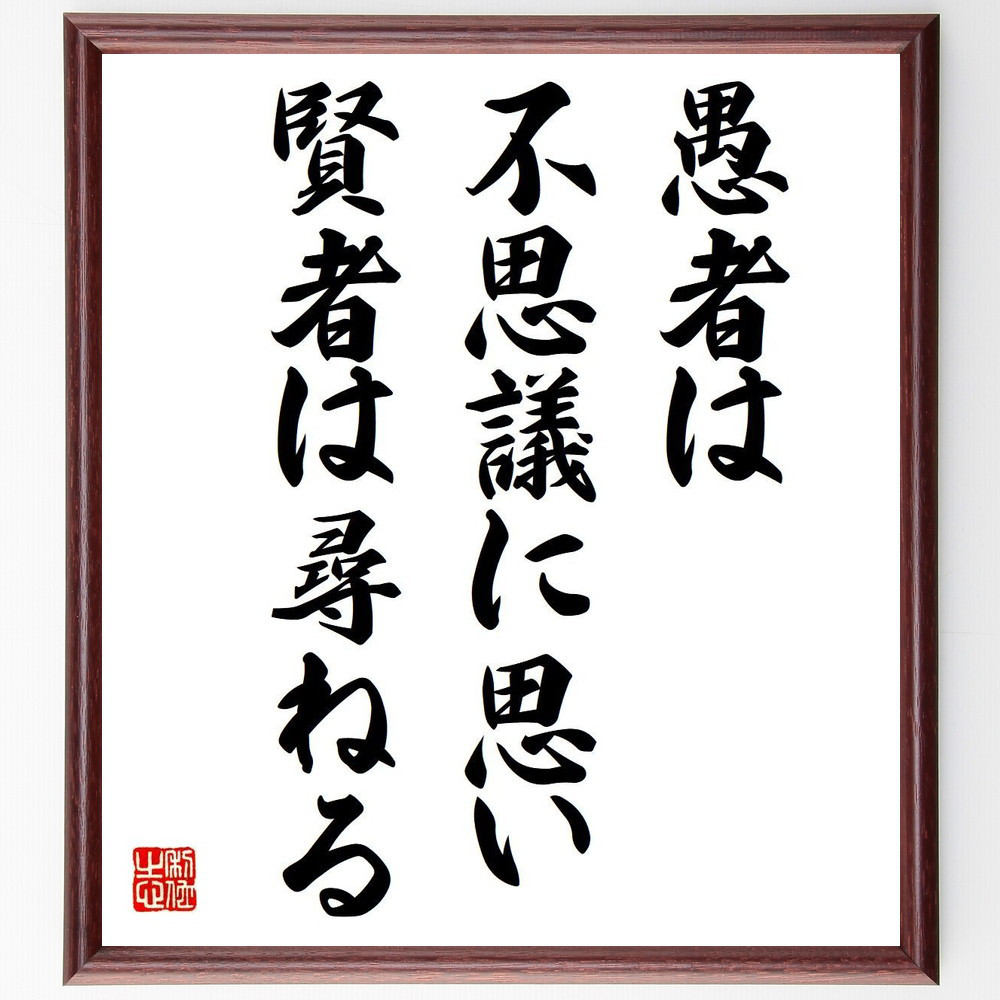 愚者は
不思議に思い
賢者は尋ねる